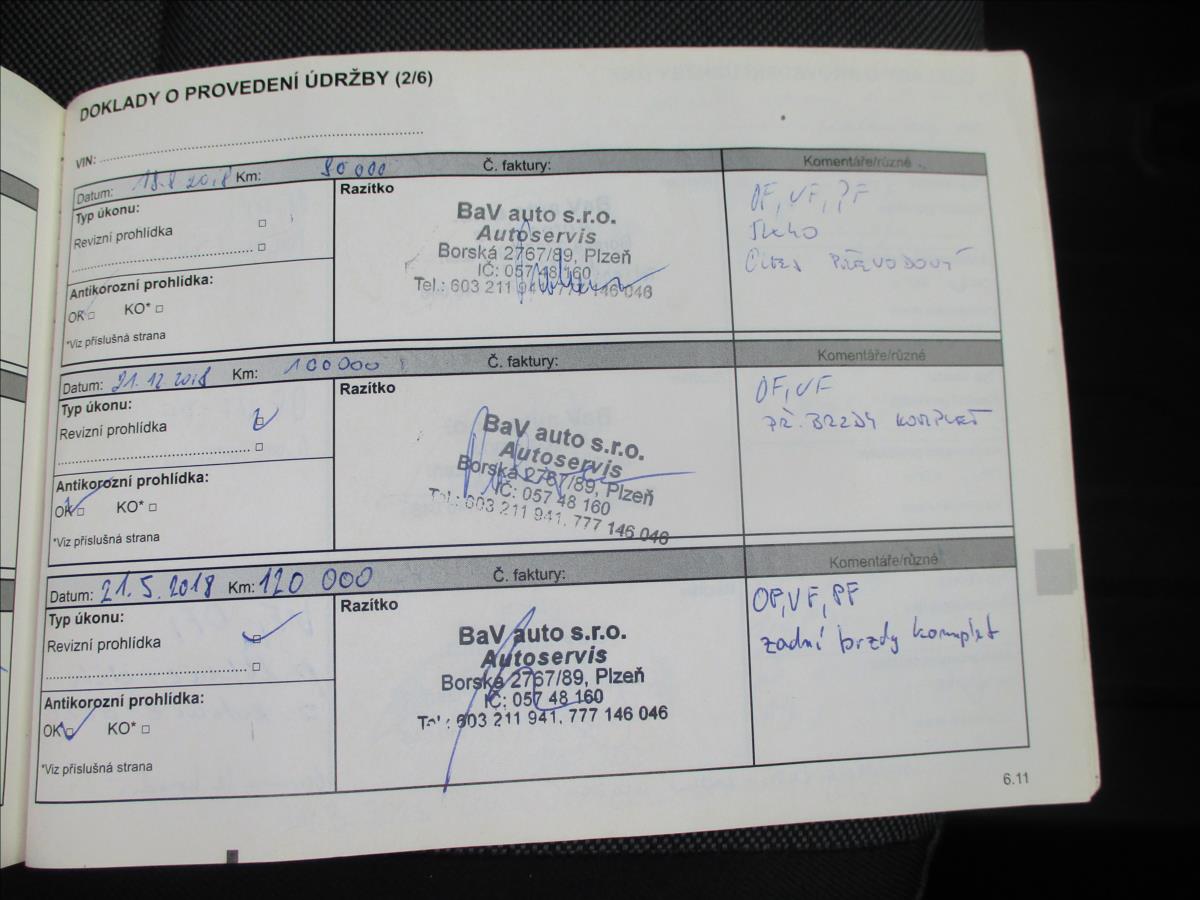 DOKLADY O PROVEDENÍ ÚDRŽBY (2/6)
VIN:
Datum: 18.8 2018 Km: 90 000 Č. faktury: Komentáře/různé
Typ úkonu:
Revizní prohlídka
Antikorozní prohlídka:
OK KO*
*Viz příslušná strana
Razítko
BaV auto s.r.o.
Autoservis
Borská 2767/89, Plzeň
IČ: 057 48 160
Tel.: 603 211 941, 777 146 046
OF, VF, PF
OLEJ PŘEVODOVÝ
Datum: 21.12 2018 Km: 100000 Č. faktury: Komentáře/různé
Typ úkonu:
Revizní prohlídka
Antikorozní prohlídka:
OK KO*
*Viz příslušná strana
Razítko
BaV auto s.r.o.
Autoservis
Borská 2767/89, Plzeň
IČ: 057 48 160
Tel.: 603 211 941, 777 146 046
OF, VF
PŘ. BRZDY KOMPLET
Datum: 21.5.2018 Km: 120 000 Č. faktury: Komentáře/různé
Typ úkonu:
Revizní prohlídka
Antikorozní prohlídka:
OK KO*
*Viz příslušná strana
Razítko
BaV auto s.r.o.
Autoservis
Borská 2767/89, Plzeň
IČ: 057 48 160
Tel.: 603 211 941, 777 146 046
OP, VF, PF
zadní brzdy komplet
6.11